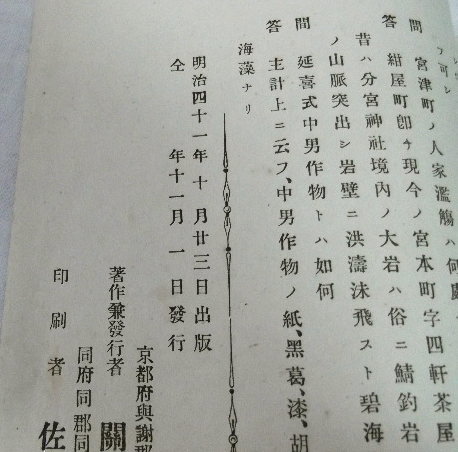 ヲ可シ
問 宮津町ノ人家濫觴ハ何處
答 紺屋町卽チ現今ノ宮本町字四軒茶屋
昔ハ分宮神社境内ノ大岩ハ俗ニ鯖釣岩
ノ山脈突出シ岩壁ニ洪濤沫飛スト碧海
問 延喜式中男作物トハ如何
答 主計上ニ云フ、中男作物ノ紙、黑葛、漆、胡
海藻ナリ
明治四十一年十月廿三日出版
仝 年十一月一日發行
京都府與謝郡
著作兼發行者 關
同府同郡同
印刷者 佐